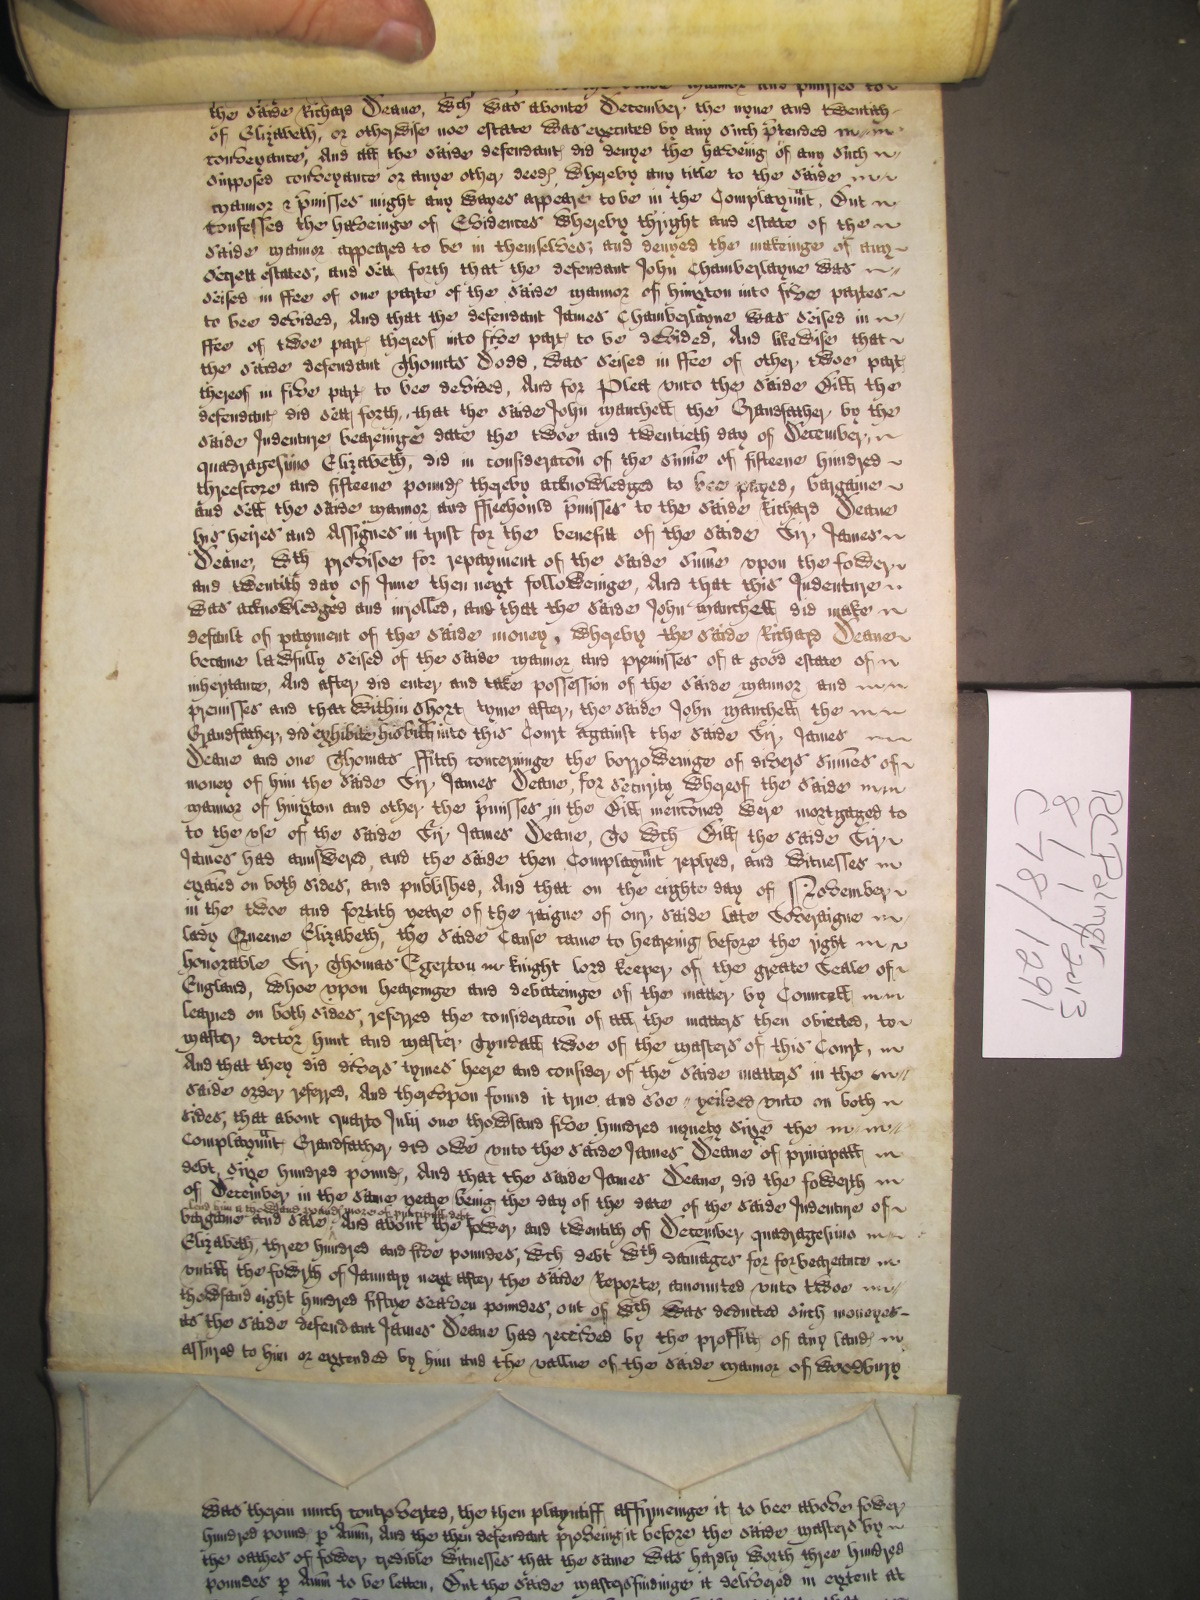 mannor and pmisses to
the saide Richard Deane, wch was aboute December the nyne and twentith
of Elizabeth, or otherwise noe estate was executed by any such ptended
conveyance, And all the saide defendant did denye the haveing of any such
supposed conveyance or anye other deed, whereby any title to the saide
mannor & pmisses might any wayes appeare to be in the Complaynnt, But
confessed the haveinge of Evidences whereby thright and estate of the
saide mannor appeared to be in themselves, and denyed the makeinge of any
secrett estates, and sett forth that the defendant John Chamberlayne was
seised in ffee of one parte of the saide mannor of hington into five partes
to bee devided, And that the defendant James Chamberlayne was seised in
ffee of twoe part thereof into five part to be devided, And likewise that
the saide defendant Thomas Dodd, was seised in ffee of other twoe part
thereof in five part to bee devided, And for Plea unto the saide Bill the
defendant did sett forth, that the saide John manchell the Grandfather by the
saide Indenture beareinge date the twoe and twentieth day of December,
quadragesimo Elizabeth, did in consideracon of the sume of fifteene hundred
threescore and fifteene pound thereby acknowledged to bee payed, bargaine
and sell the saide mannor and ffreehould pmisses to the saide Richard Deane
his heires and Assignes in trust for the benefitt of the saide Sir James
Deane, wth provisoe for repayment of the saide sume upon the fower
and twentith day of June then next followeinge, And that this Indenture
was acknowledged and inrolled, and that the saide John manchell did make
default of payment of the saide money, whereby the saide Richard Deane
became lawfully seised of the saide mannor and premisses of a good estate of
inherytance, And after did enter and take possession of the saide mannor and
premisses and that within short tyme after, the saide John manchell the
Grandfather, did exhibite his bill into this Court against the saide Sir James
Deane and one Thomas ffitch concerninge the borroweinge of divers sumes of
money of him the saide Sir James Deane, for security whereof the saide
mannor of hington and other the pmisses in the Bill mentoned were mortgaged to
to the use of the saide Sir James Deane, To wch Bill the saide Sir
James had annswered, and the saide then Complaynnt replyed, and witnesses
exaied on both sides, and published, And that on the eighte day of November
in the twoe and fortith yeare of the raigne of our saide late Soveraigne
lady Queene Elizabeth, the saide Cause came to heareing before the right
honorable Sir Thomas Egerton knight lord keeper of the greate Seale of
England, whoe upon heareinge and debateinge of the matter by Councell
learned on both sides, referred the consideracon of all the matters then obiected, to
master doctor hunt and master Tyndall twoe of the masters of this Court,
And that they did divers tymes heere and consider of the saide matters in the
saide order referred, And thereupon found it true and soe yeilded unto on both
sides, that about quarto Julij one thowsand five hundred nynety sixe the
Complaynnt Grandfather did owe unto the saide James Deane of principall
debt sixe hundred pound, And that the saide James Deane, did the fowerth
of December in the same yeare being the day of the date of the saide Indenture of
lend him a thowsand pound more of principall debt
bargaine and sale, And about the fower and twentith of December quadragesimo
Elizabeth, three hundred and five poundes, wch debt wth damages for forbearance
untill the fowrth of January next after the saide Reporte, amounted unto twoe
thowsand eight hundred fiftye seaven poundes, out of wch was deducted such moneyes
as the saide defendant James Deane had received by the proffitt of any land
assured to him or extended by him and the vallue of the saide mannor of woodbury
was therein much controverted, the then playntiff affirmeinge it to bee above fower
hundred pound p Annu, And the then defendant proveing it before the saide masters by
the oathes of fower credible witnesses that the same was hardly worth three hundred
poundes p Annu to be letten, But the saide masters findinge it delivered in extent at
RCPalmer
8/1/2013
C78/1291